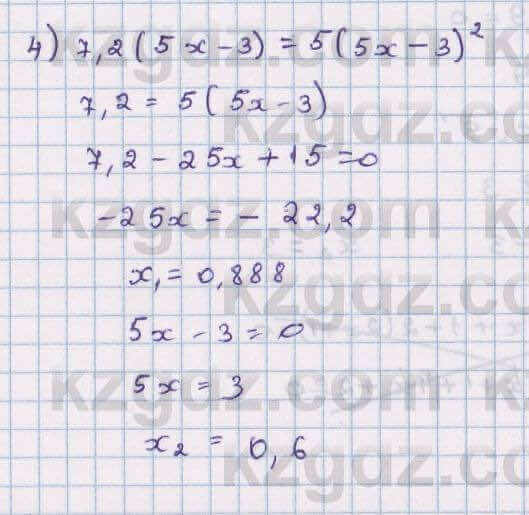 4) 7,2(5x-3) = 5(5x-3)²
7,2 = 5(5x-3)
7,2-25x+15=0
-25x = - 22,2
x₁ = 0,888
5x - 3 = 0
5x = 3
x₂ = 0,6
kzgdz.com